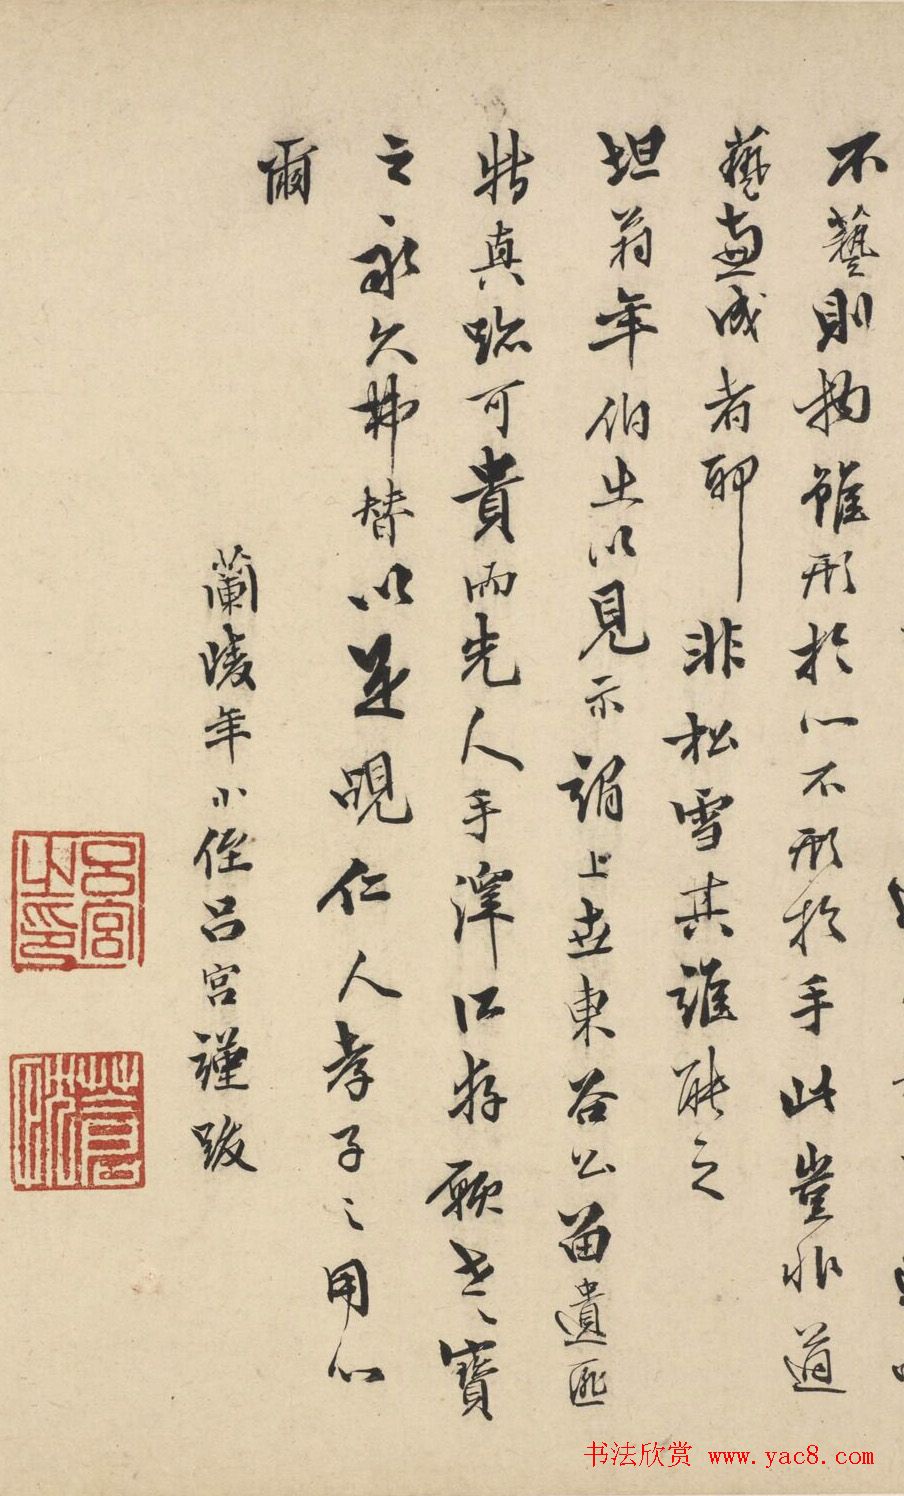 不藝則物雖形於心不形於手此豈非道
藝兼成者耶非松雪其誰能之
坦翁年伯出以見示謂上世東谷公留遺匪
特真跡可貴而先人手澤所存願世〻寶
之永久弗替以是覘仁人孝子之用心
爾
蘭陵年小侄呂宮謹跋
呂宮之印
书法欣赏 www.yac8.com